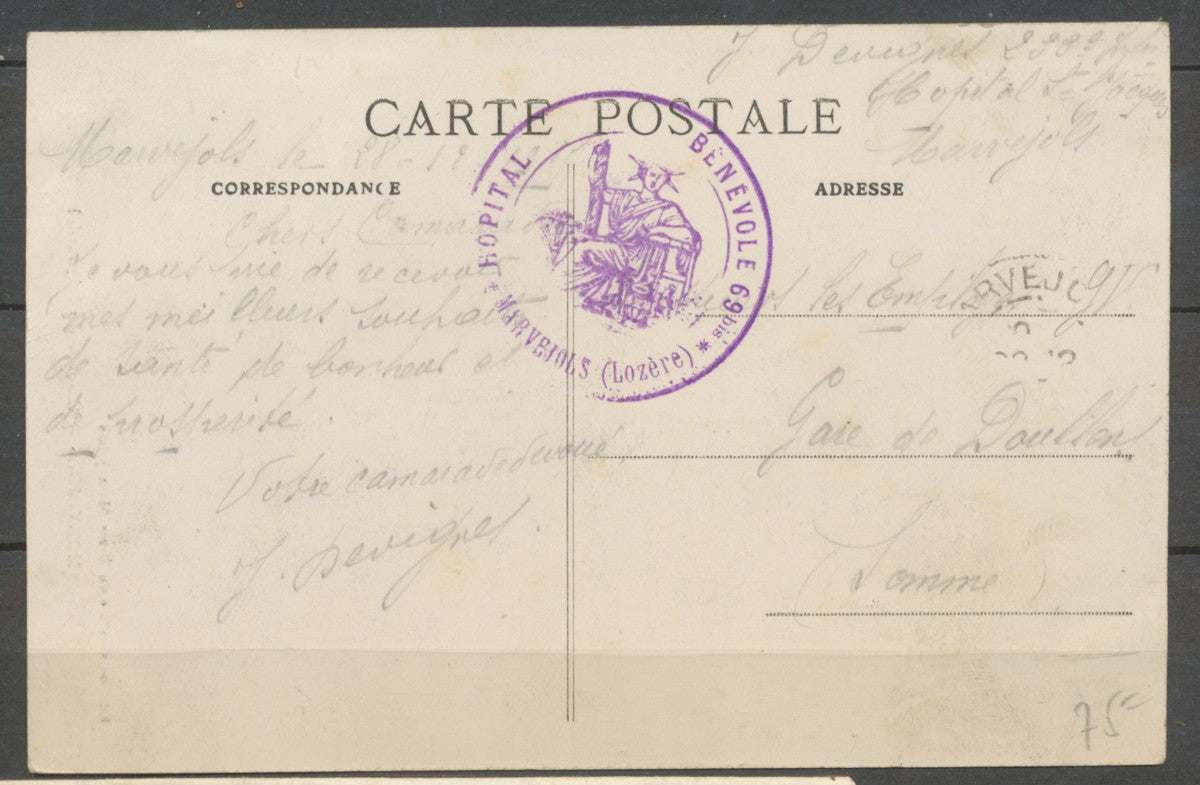 J. Devignes 233e
Hopital St Jacques
Marvejols
CARTE POSTALE
CORRESPONDANCE
ADRESSE
HOPITAL BÉNÉVOLE 69 bis
* MARVEJOLS (Lozère) *
Marvejols le 28-12
Chers Camarades
Je vous prie de recevoir
mes meilleurs souhaits
de santé de bonheur et
de prosperité.
Votre camarade devoué,
J. Devignes.
les
ARVEJO
Gare de Doullens
(Somme)
75